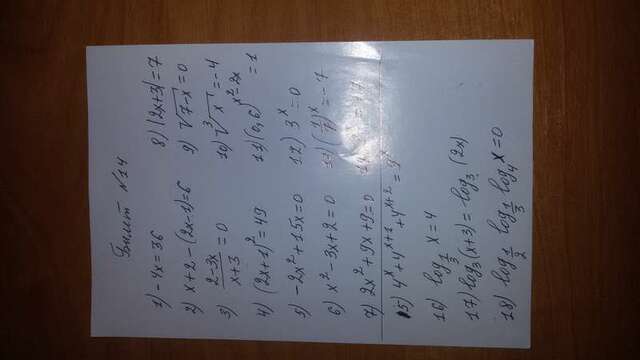 Билет №14
1) -4x = 36
2) x+2-(2x-1)=6
3) (2-3x)/(x+3) = 0
4) (2x+1)² = 49
5) -2x²+15x=0
6) x²-3x+2=0
7) 2x²+9x+9=0
8) |2x+3|=7
9) √(7-x) = 0
10) ∛x = -4
11) (0,6)^(x²-2x) = 1
12) 3^x = 0
(1/7)^x = -7
15) 4^x + 4^(x+1) + 4^(x+2) = 9^x
16) log_(1/3) x = 4
17) log_3 (x+3) = log_3 (2x)
18) log_(1/2) log_(1/3) log_4 x = 0